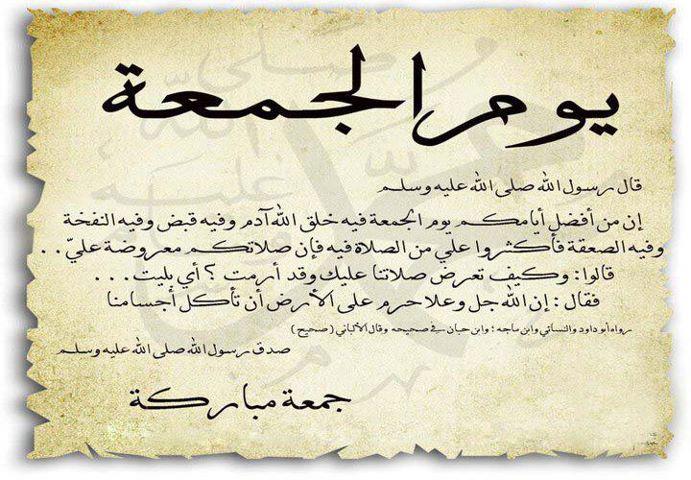 يوم الجمعة
قال رسول الله صلى الله عليه وسلم
إن من أفضل أيامكم يوم الجمعة فيه خلق الله آدم وفيه قبض وفيه النفخة
وفيه الصعقة فأكثروا علي من الصلاة فيه فإن صلاتكم معروضة عليّ . .
قالوا : وكيف تعرض صلاتنا عليك وقد أرمت ؟ أي بليت . . .
فقال : إن الله جل وعلا حرم على الأرض أن تأكل أجسامنا
رواه أبو داود والنسائي وابن ماجه ؛ وابن حبان في صحيحه وقال الألباني ( صحيح )
صدق رسول الله صلى الله عليه وسلم
جمعة مباركة